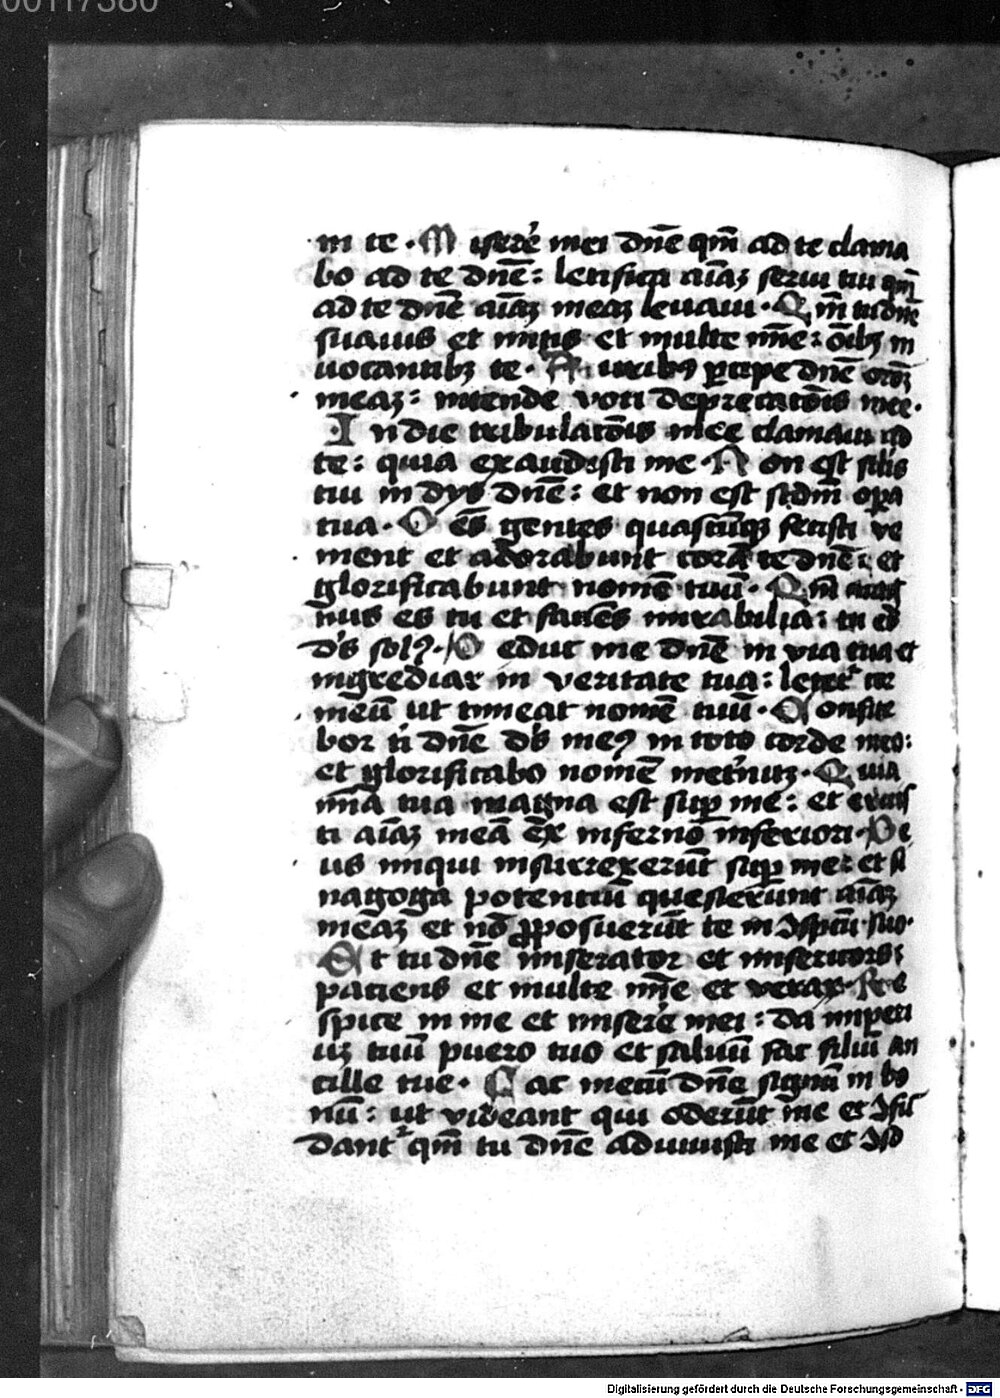 00117380
in te. Miserē mei dn̄e qm̄ ad te clama
bo ad te dn̄e: letifica aīaꝫ serui tui qm̄
ad te dn̄e aīaꝫ meaꝫ leuaui. Qm̄ tu dn̄e
suauis et mitis et multe mīe: oībꝫ in
uocantibꝫ te. Auribꝰ ꝑcipe dn̄e orōeꝫ
meaꝫ: intende voti deprecatōis mee.
In die tribulatōis mee clamaui ad
te: quia exaudisti me. Non est silis
tui in dijs dn̄e: et non est scdm̄ oꝑa
tua. Oēs gentes quascūqꝫ fecisti ve
nient et adorabunt corā te dn̄e: et
glorificabunt nomē tuū. Qm̄ mag
nus es tu et faciēs mirabilia: tu es
dš solꝰ. Deduc me dn̄e in via tua et
ingrediar in veritate tua: letet᷑ cor
meū ut timeat nomē tuū. Confite
bor ti dn̄e dš meꝰ in toto corde meo:
et glorificabo nomē tuū in et̄nuꝫ. Quia
mīa tua magna est suꝑ me: et eruis
ti aīaꝫ meā ex inferno inferiori. De
us iniqui insurrexerūt suꝑ me: et si
nagoga potentiū quesierūnt aīaꝫ
meaꝫ et nō ꝓposuerūt te in ɔspcū suo.
Et tu dn̄e miserator et misericors:
patiens et multe mīe et verax. Re
spice in me et miserē mei: da imperi
uꝫ tuū puero tuo et saluū fac filiū an
cille tue. Fac mecū dn̄e signū in bo
nū: ut videant qui oderūt me et ɔfū
dant᷑ qm̄ tu dn̄e adiuuisti me et ɔso
Digitalisierung gefördert durch die Deutsche Forschungsgemeinschaft - DFG